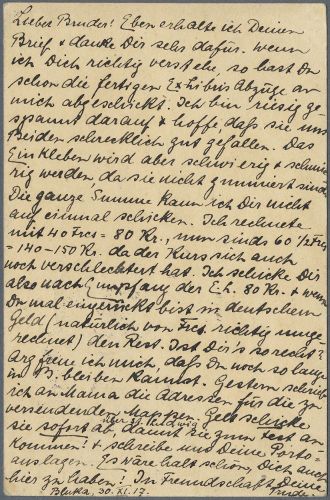 Lieber Bruder! Eben erhalte ich Deinen
Brief & danke Dir sehr dafür. Wenn
ich Dich richtig verstehe, so hast Du
schon die fertigen Exhibisabzüge an
mich abgeschickt. Ich bin riesig ge-
spannt darauf & hoffe, daß sie uns
Beiden schrecklich gut gefallen. Das
Einkleben wird aber schwierig & schmie-
rig werden, da sie nicht gummiert sind.
Die ganze Summe kann ich Dir nicht
auf einmal schicken. Ich rechnete
mit 40 Frcs = 80 Kr., nun sinds 60 1/2 Frcs
= 140-150 Kr. da der Kurs sich auch
noch verschlechtert hat. Ich schicke Dir
also nach Empfang der E.h. 80 Kr. & wenn
Du mal eingerückt bist in deutschem
Geld (natürlich von Frcs. richtig umge-
rechnet) den Rest. Ist Dir's so recht?
Arg freue ich mich, daß Du noch so lang
in B. bleiben kannst. Gestern schrieb
ich an Mama die Adressen für die zu
versendenden Mappen. Geh schicke
sie sofort ab damit sie zum Fest an-
kommen! & schreibe uns Deine Porto-
auslagen. Es wäre halt schön, Dich auch
hier zu haben! In Freundschaft, Deine
Bluka, 30. XI. 17.